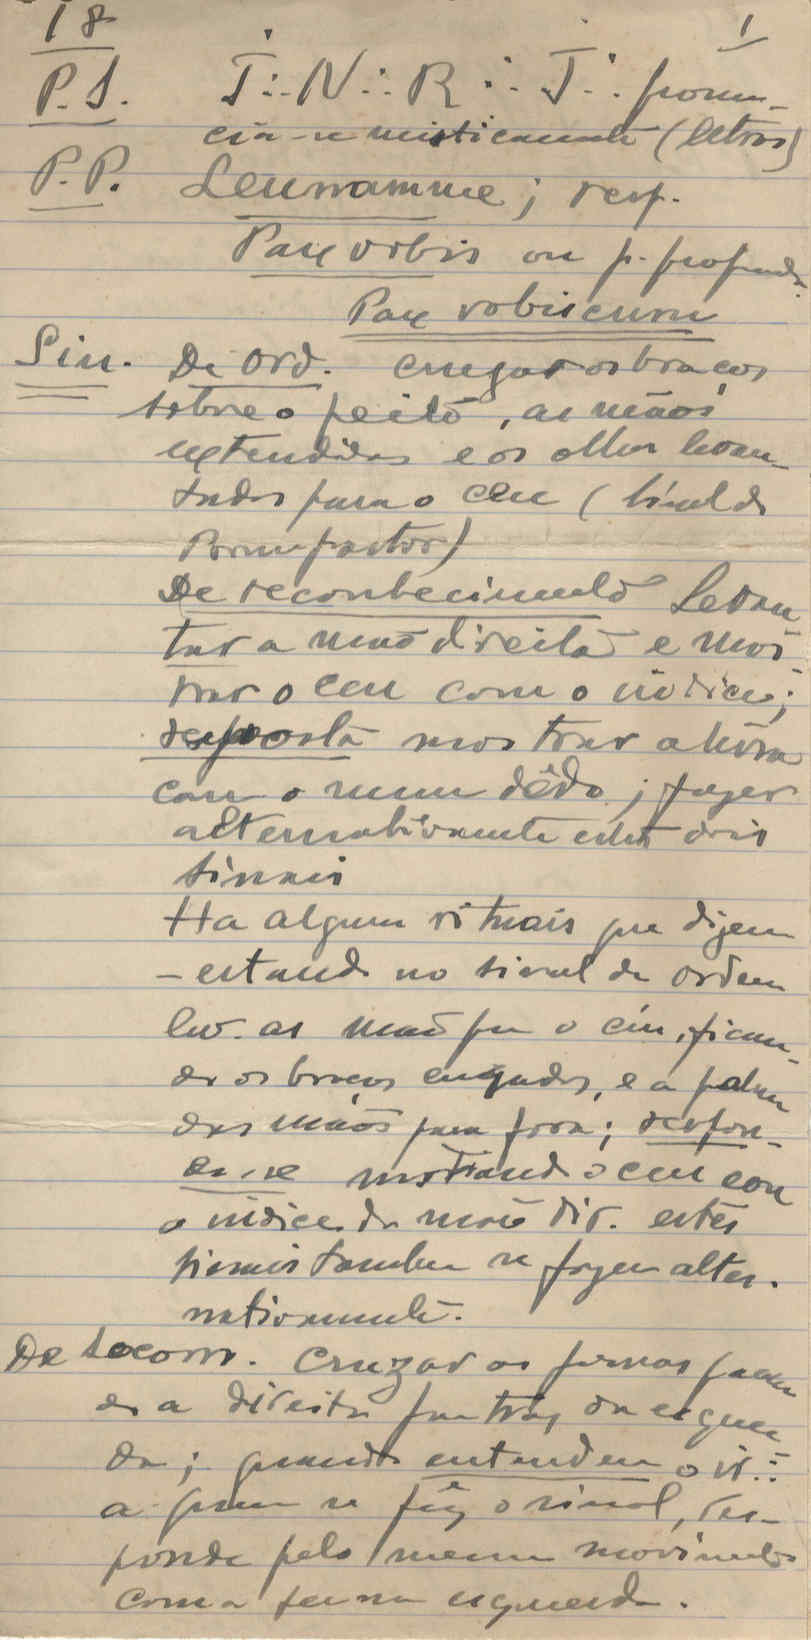 18 1
P. S. I∴ N∴ R∴ I∴ pronun-
cia-se misticamente (letras)
P. P. Emmanuel; resp.
Pax vobis ou p. profunda
Pax vobiscum
Sin. De Ord. cruzar os braços
sobre o peito, as mãos
extendidas e os olhos levan-
tados para o ceu (sinal do
Bom pastor)
De reconhecimento Levan-
tar a mão direita e mos-
trar o ceu com o indice;
resposta mostrar a terra
com o mesmo dêdo; fazer
alternativamente estes dois
sinais
Ha alguns rituais que dizem
- estando no sinal de ordem
lev. as mãos para o ceu, fican-
do os braços cruzados, e a palma
das mãos para fora; respon-
de-se mostrando o ceu com
o indice da mão dir. estes
sinais tambem se fazem alter-
nativamente.
De Socorro. Cruzar as pernas fican
do a direita por traz da esquer
da; quando entendem o ir∴
a quem se fêz o sinal, res-
ponde pelo mesmo movimento
com a perna esquerda.